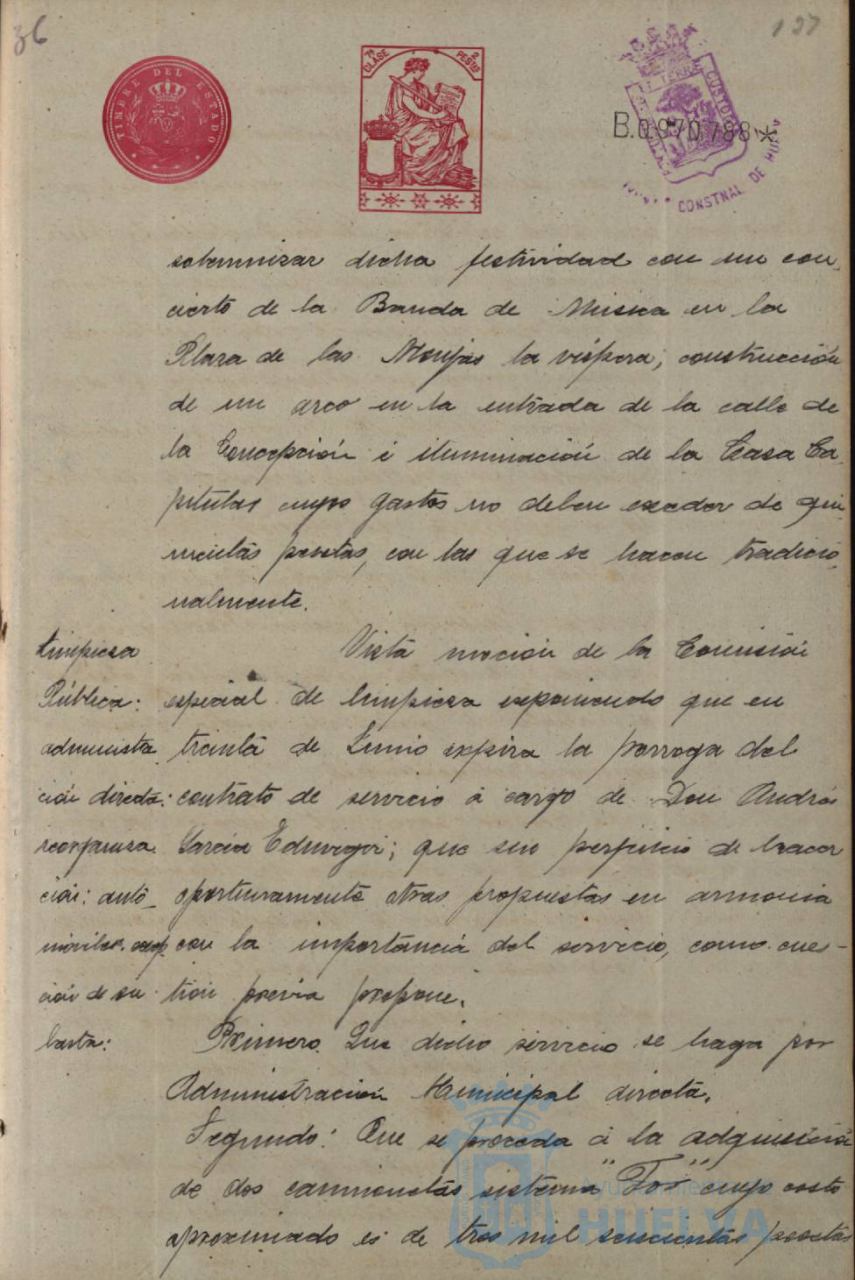 36
127
TIMBRE DEL ESTADO
7ª CLASE
2 PESTAS
B.0.970.788*
CONSTNAL DE HUELVA
solemnizar dicha festividad con un con-
cierto de la Banda de Musica en la
Plaza de las Monjas la víspera; construcción
de un arco en la entrada de la calle de
la Concepción é iluminación de la Casa Ca-
pitular cuyos gastos no deben exceder de qui-
nientas pesetas, con las que se hacen tradicio-
nalmente.
Limpiesa
Pública:
administra
ción directa:
reorganiza
ción: auto-
móviles: excep
ción de su
basta:
Vista moción de la Comisión
especial de limpiesa exponiendo que en
treinta de Junio expira la porroga del
contrato de servicio á cargo de Don Andrés
García Eduvigis; que sin perjuicio de hacer
oportunamente otras propuestas en armonia
con la importancia del servicio, como cues-
tion previa propone.
Primero. Que dicho servicio se haga por
Administracion Municipal directa.
Segundo: Que se proceda á la adquisición
de dos camionetas sistema "For" cuyo costo
aproximado es de tres mil seiscientas pesetas
Ayuntamiento de
HUELVA